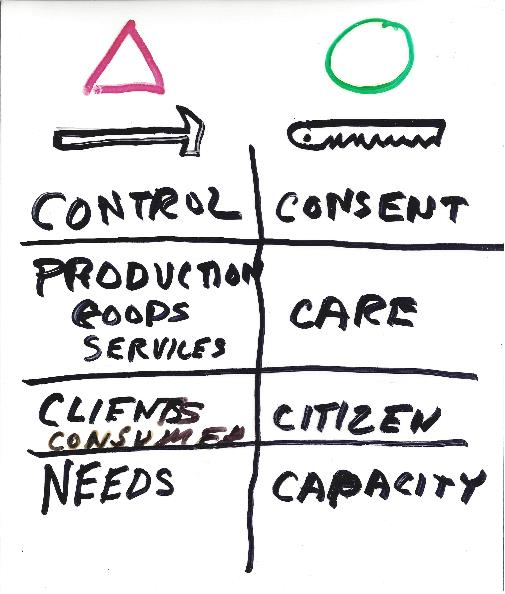 CONTROL
CONSENT
PRODUCTION
GOODS
SERVICES
CARE
CLIENTS
CONSUMER
CITIZEN
NEEDS
CAPACITY